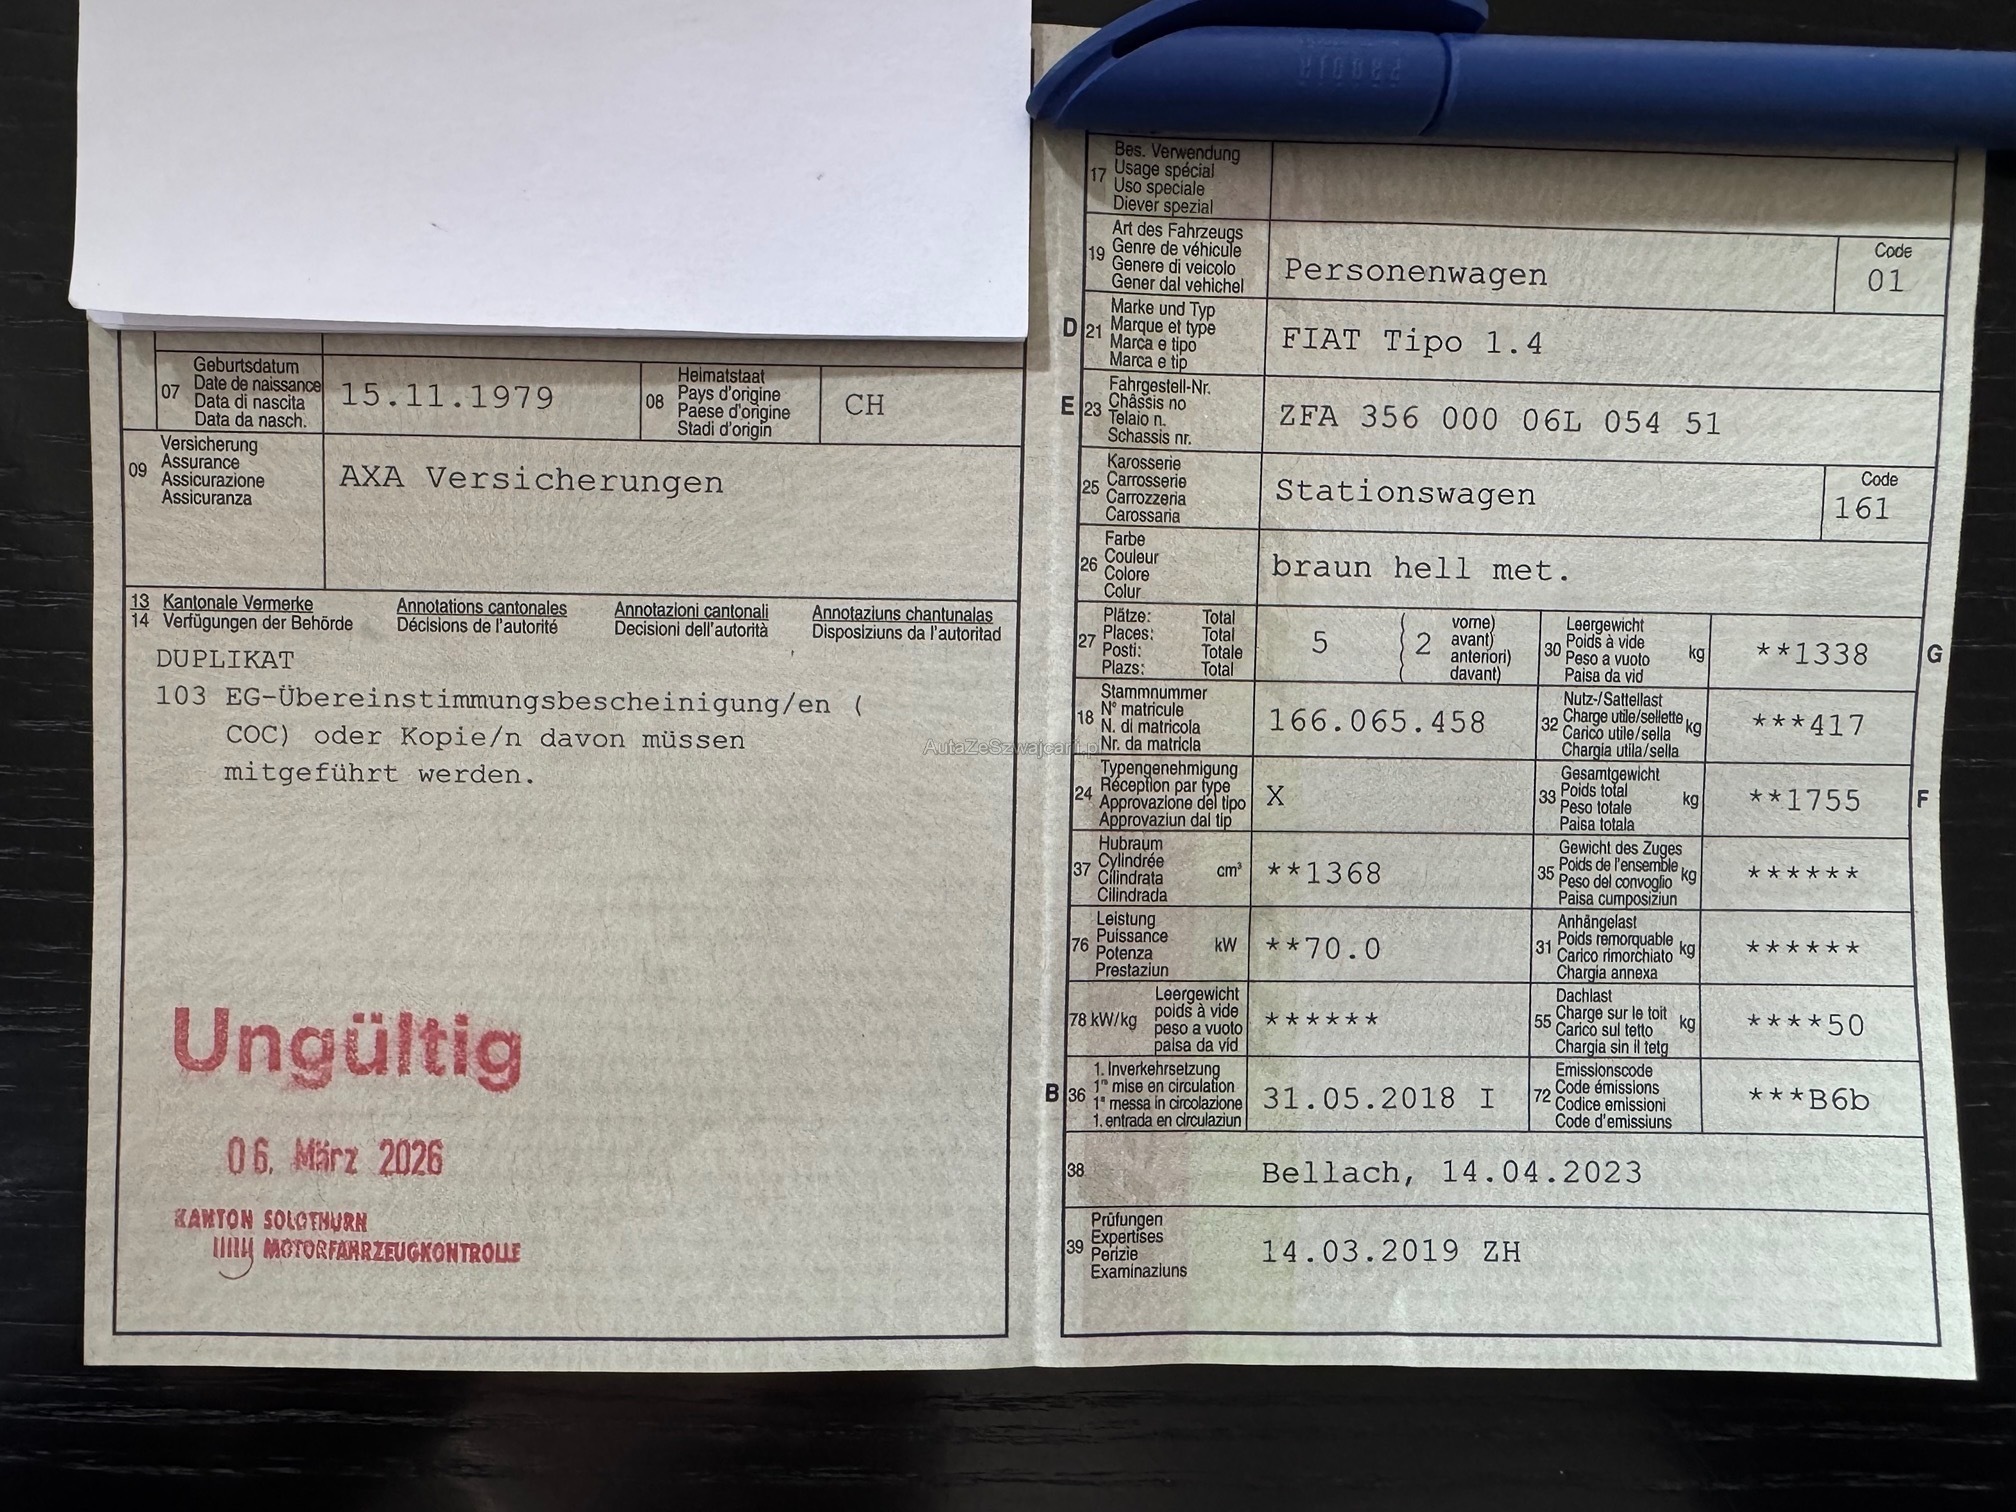 07 Geburtsdatum
Date de naissance
Data di nascita
Data da nasch.
15.11.1979
08 Heimatstaat
Pays d'origine
Paese d'origine
Stadi d'origin
CH
09 Versicherung
Assurance
Assicurazione
Assicuranza
AXA Versicherungen
13 Kantonale Vermerke Annotations cantonales Annotazioni cantonali Annotaziuns chantunalas
14 Verfügungen der Behörde Décisions de l'autorité Decisioni dell'autorità Disposiziuns da l'autoritad
DUPLIKAT
103 EG-Übereinstimmungsbescheinigung/en (
COC) oder Kopie/n davon müssen
mitgeführt werden.
Ungültig
06. März 2026
KANTON SOLOTHURN
MOTORFAHRZEUGKONTROLLE
17 Bes. Verwendung
Usage spécial
Uso speciale
Diever spezial
19 Art des Fahrzeugs
Genre de véhicule
Genere di veicolo
Gener dal vehichel
Personenwagen
Code
01
D 21 Marke und Typ
Marque et type
Marca e tipo
Marca e tip
FIAT Tipo 1.4
E 23 Fahrgestell-Nr.
Châssis no
Telaio n.
Schassis nr.
ZFA 356 000 06L 054 51
25 Karosserie
Carrosserie
Carrozzeria
Carossaria
Stationswagen
Code
161
26 Farbe
Couleur
Colore
Colur
braun hell met.
27 Plätze: Total
Places: Total
Posti: Totale
Plazs: Total
5 ( 2 vorne)
avant)
anteriori)
davant)
30 Leergewicht
Poids à vide
Peso a vuoto
Paisa da vid
kg
**1338
G
18 Stammnummer
N° matricule
N. di matricola
Nr. da matricla
166.065.458
32 Nutz-/Sattellast
Charge utile/sellette
Carico utile/sella
Chargia utila/sella
kg
***417
AutaZeSzwajcarii.pl
24 Typengenehmigung
Réception par type
Approvazione del tipo
Approvaziun dal tip
X
33 Gesamtgewicht
Poids total
Peso totale
Paisa totala
kg
**1755
F
37 Hubraum
Cylindrée
Cilindrata
Cilindrada
cm³
**1368
35 Gewicht des Zuges
Poids de l'ensemble
Peso del convoglio
Paisa cumposiziun
kg
******
76 Leistung
Puissance
Potenza
Prestaziun
kW
**70.0
31 Anhängelast
Poids remorquable
Carico rimorchiato
Chargia annexa
kg
******
78 kW/kg Leergewicht
poids à vide
peso a vuoto
paisa da vid
******
55 Dachlast
Charge sur le toit
Carico sul tetto
Chargia sin il tetg
kg
****50
B 36 1. Inverkehrsetzung
1re mise en circulation
1a messa in circolazione
1. entrada en circulaziun
31.05.2018 I
72 Emissionscode
Code émissions
Codice emissioni
Code d'emissiuns
***B6b
38 Bellach, 14.04.2023
39 Prüfungen
Expertises
Perizie
Examinaziuns
14.03.2019 ZH